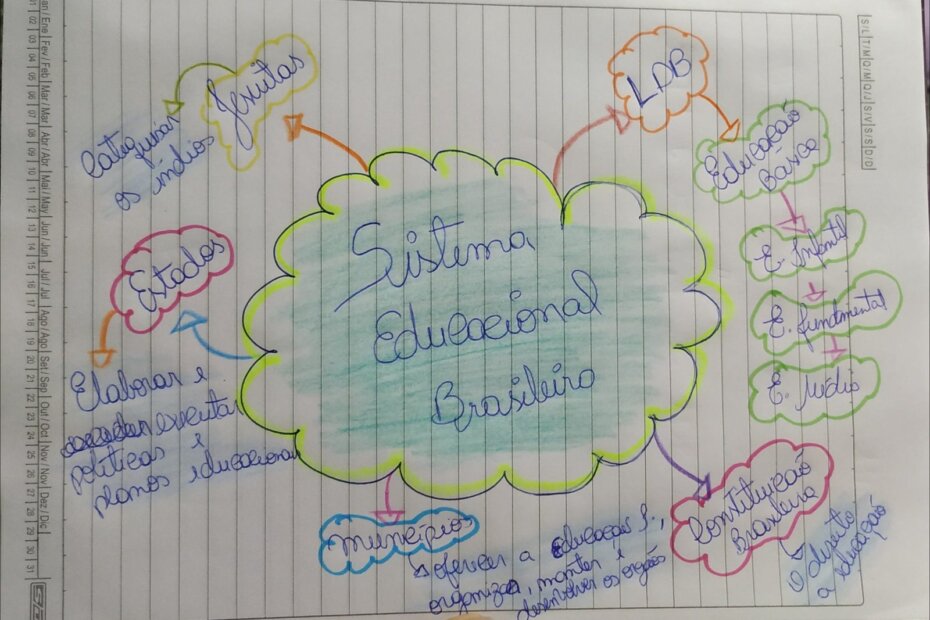 Sistema
Educacional
Brasileiro
Jesuitas
Catequizar
os índios
LDB
Educação
Básica
E. Infantil
E. fundmental
E. Médio
Estados
Elaborar e
executar
políticas e
planos educacionais
Município
oferecer a educação I.,
organizar, manter e
desenvolver os orgãos
Constituição
Brasileira
direito
a educação
Jan / Ene | Fev / Feb | Mar / Mar | Abr / Abr | Mai / May | Jun / Jun | Jul / Jul | Ago / Ago | Set / Sep | Out / Oct | Nov / Nov | Dez / Dic
01 | 02 | 03 | 04 | 05 | 06 | 07 | 08 | 09 | 10 | 11 | 12 | 13 | 14 | 15 | 16 | 17 | 18 | 19 | 20 | 21 | 22 | 23 | 24 | 25 | 26 | 27 | 28 | 29 | 30 | 31
S/L | T/M | Q/M | Q/J | S/V | S/S | D/D